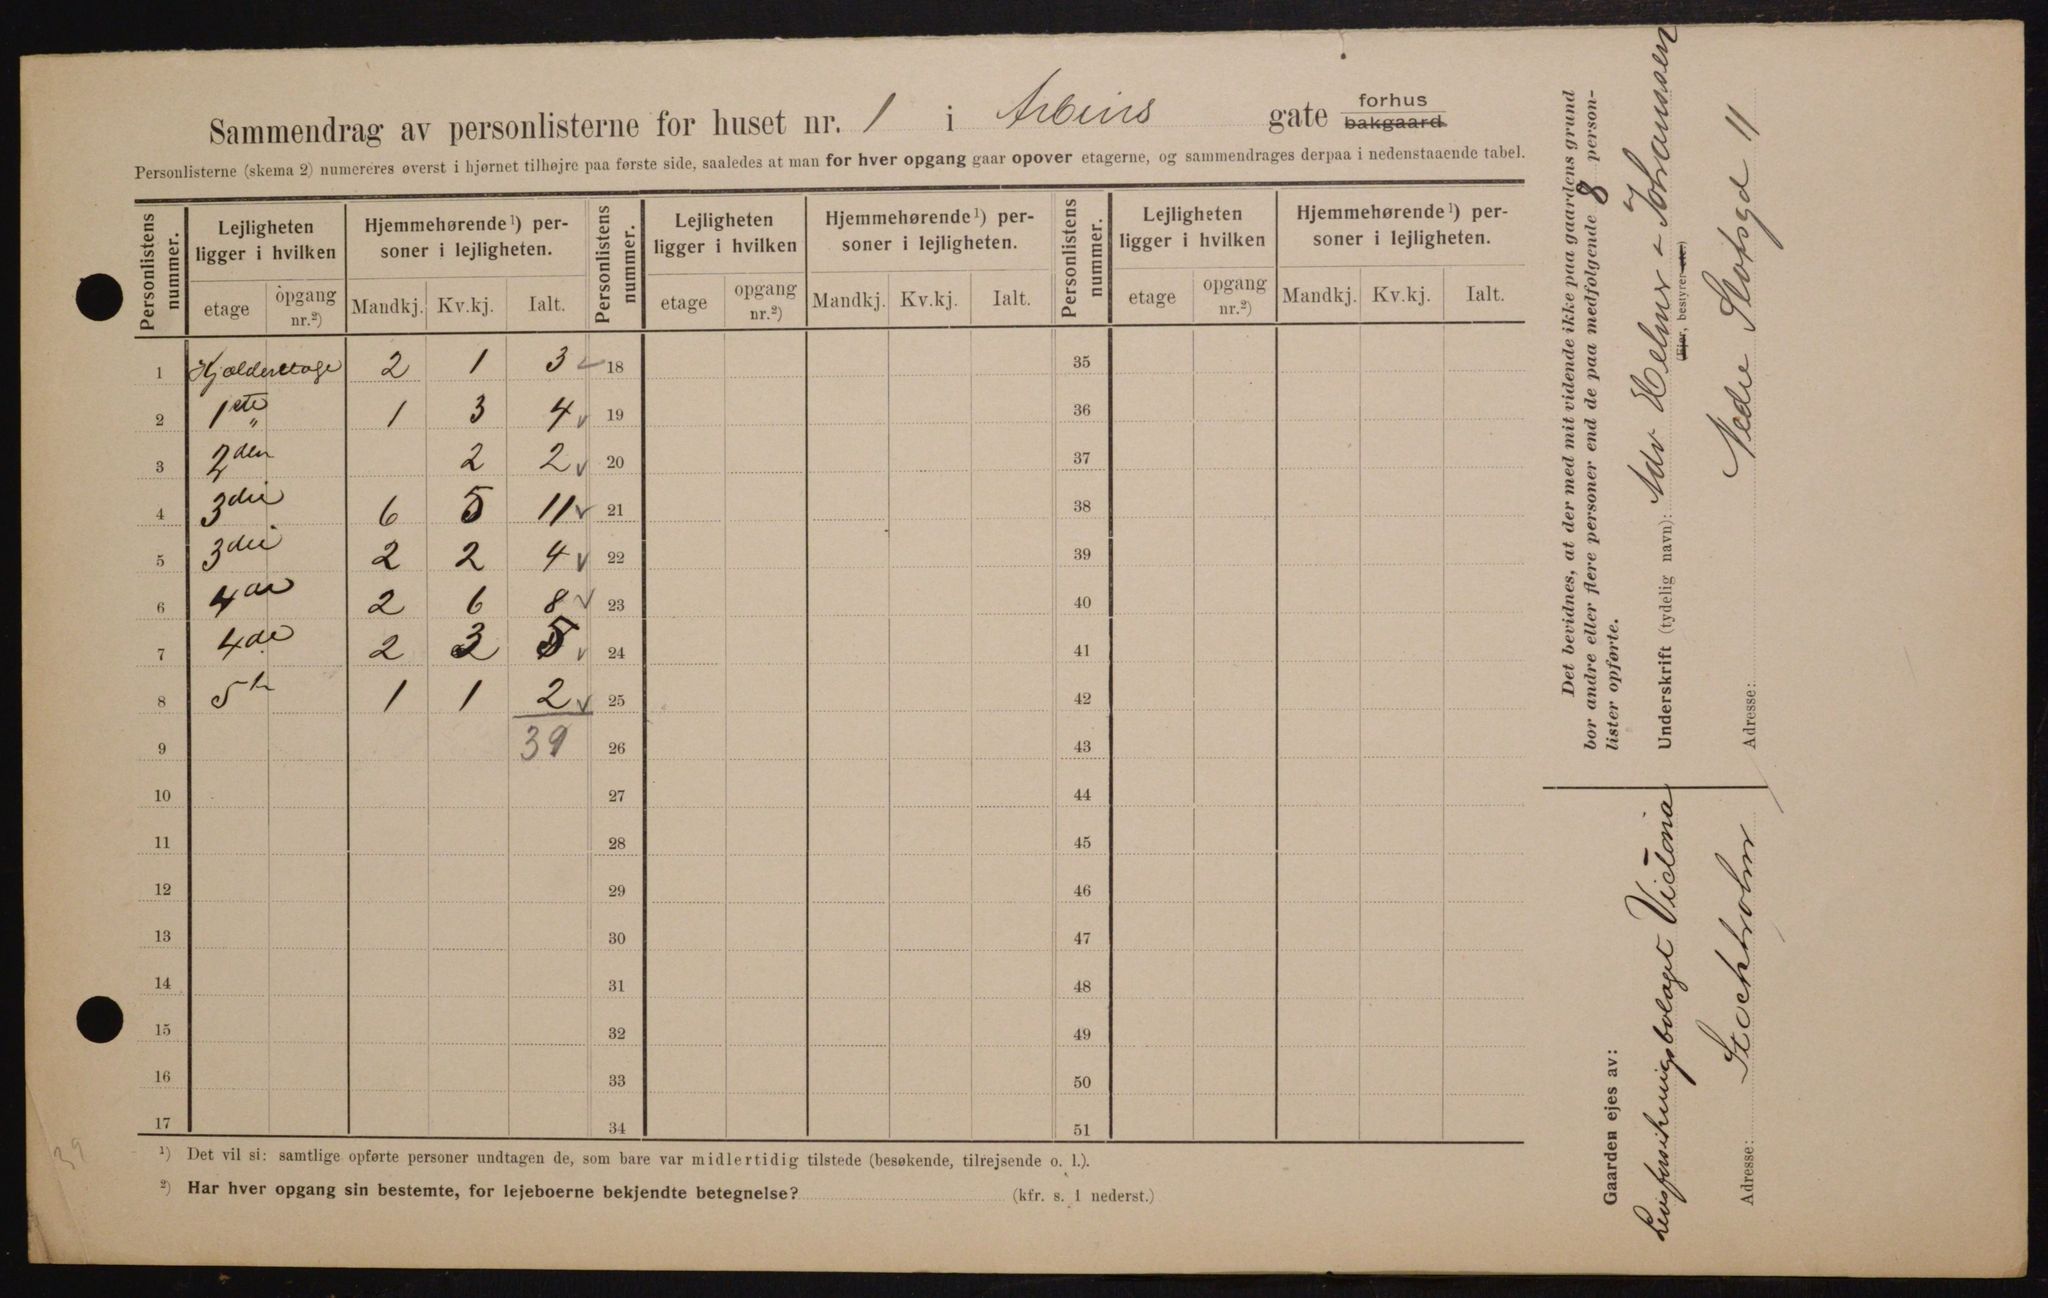 Sammendrag av personlisterne for huset nr. 1 i Arbins gate forhus bakgaard.
Personlisterne (skema 2) numereres øverst i hjørnet tilhøjre paa første side, saaledes at man for hver opgang gaar opover etagerne, og sammendrages derpaa i nedenstaaende tabel.
Personlistens nummer. Lejligheten ligger i hvilken Hjemmehørende ¹) personer i lejligheten. Personlistens nummer. Lejligheten ligger i hvilken Hjemmehørende ¹) personer i lejligheten. Personlistens nummer. Lejligheten ligger i hvilken Hjemmehørende ¹) personer i lejligheten.
etage opgang nr.²) Mandkj. Kv.kj. Ialt. etage opgang nr.²) Mandkj. Kv.kj. Ialt. etage opgang nr.²) Mandkj. Kv.kj. Ialt.
1 Kjælderetage 2 1 3 18 35
2 1ste " 1 3 4 19 36
3 2den 2 2 20 37
4 3die 6 5 11 21 38
5 3die 2 2 4 22 39
6 4de 2 6 8 23 40
7 4de 2 3 5 24 41
8 5te 1 1 2 25 42
9 39 26 43
10 27 44
11 28 45
12 29 46
13 30 47
14 31 48
15 32 49
16 33 50
17 34 51
39
¹) Det vil si: samtlige opførte personer undtagen de, som bare var midlertidig tilstede (besøkende, tilrejsende o. l.).
²) Har hver opgang sin bestemte, for lejeboerne bekjendte betegnelse? (kfr. s. 1 nederst.)
Det bevidnes, at der med mit vidende ikke paa gaardens grund
bor andre eller flere personer end de paa medfølgende 8 person-
lister opførte.
Underskrift (tydelig navn): Adv Helmer Johanssen
(Ejer, bestyrer etc.)
Adresse: Nedre Slotsgd 11
Gaarden ejes av:
Livsforsikringsbolaget Victoria
Adresse: Stockholm